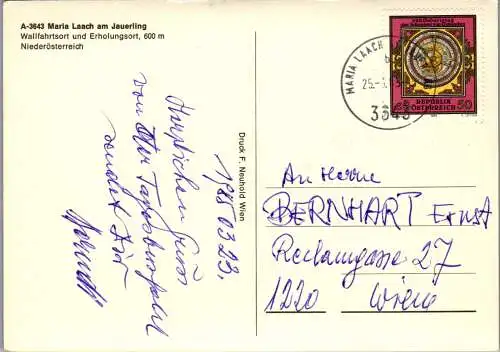 A-3643 Maria Laach am Jauerling
Wallfahrtsort und Erholungsort, 600 m
Niederösterreich
1985 03 23.
Herzlichen Gruss
von der
sendet Dir
Druck F. Neuhold Wien
MARIA LAACH
25.-3.
3643
REPUBLIK
ÖSTERREICH
S 6
50
An Herrn
BERNHART Ernst
Reclamgasse 27
1220 Wien